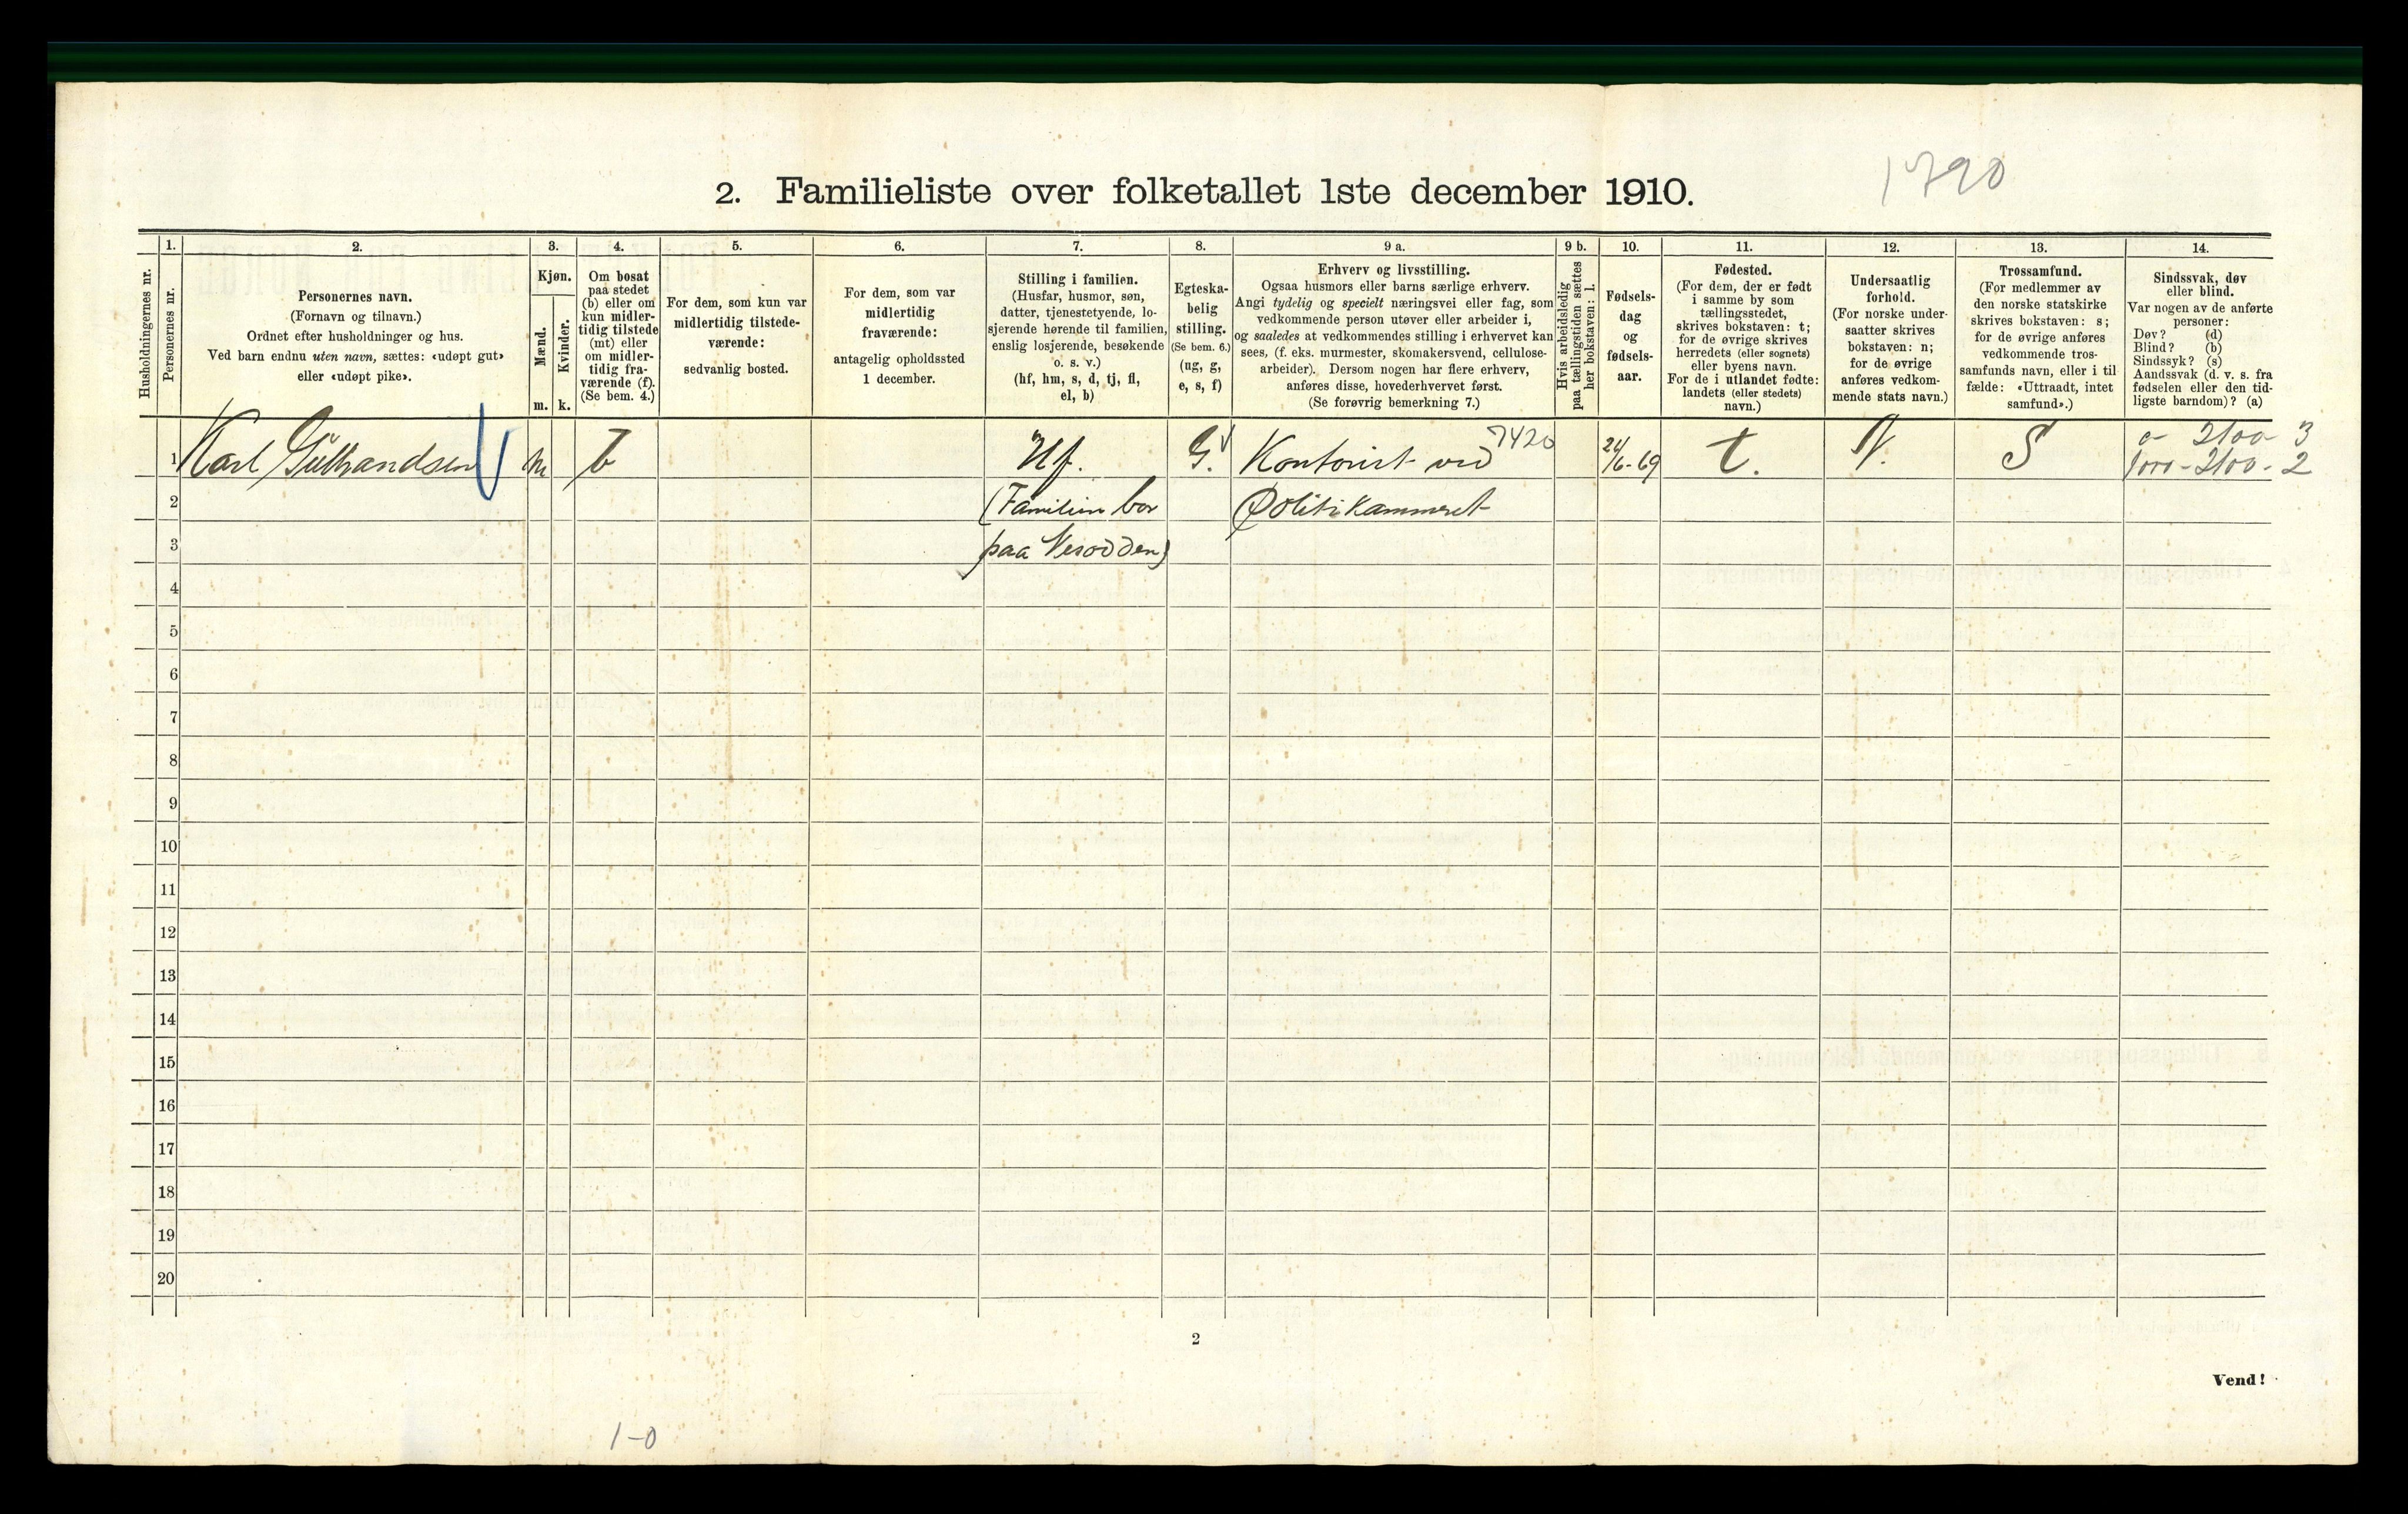 1790
2. Familieliste over folketallet 1ste december 1910.
Husholdningernes nr.
1.
Personernes nr.
2.
Personernes navn.
(Fornavn og tilnavn.)
Ordnet efter husholdninger og hus.
Ved barn endnu uten navn, sættes: «udøpt gut»
eller «udøpt pike».
3.
Kjøn.
Mænd.
m.
Kvinder.
k.
4.
Om bosat
paa stedet
(b) eller om
kun midler-
tidig tilstede
(mt) eller
om midler-
tidig fra-
værende (f).
(Se bem. 4.)
5.
For dem, som kun var
midlertidig tilstede-
værende:
sedvanlig bosted.
6.
For dem, som var
midlertidig
fraværende:
antagelig opholdssted
1 december.
7.
Stilling i familien.
(Husfar, husmor, søn,
datter, tjenestetyende, lo-
sjerende hørende til familien,
enslig losjerende, besøkende
o. s. v.)
(hf, hm, s, d, tj, fl,
el, b)
8.
Egteska-
belig
stilling.
(Se bem. 6.)
(ug, g,
e, s, f)
9 a.
Erhverv og livsstilling.
Ogsaa husmors eller barns særlige erhverv.
Angi tydelig og specielt næringsvei eller fag, som
vedkommende person utøver eller arbeider i,
og saaledes at vedkommendes stilling i erhvervet kan
sees, (f. eks. murmester, skomakersvend, cellulose-
arbeider). Dersom nogen har flere erhverv,
anføres disse, hovederhvervet først.
(Se forøvrig bemerkning 7.)
9 b.
Hvis arbeidsledig
paa tællingstiden sættes
her bokstaven: l.
10.
Fødsels-
dag
og
fødsels-
aar.
11.
Fødested.
(For dem, der er født
i samme by som
tællingsstedet,
skrives bokstaven: t;
for de øvrige skrives
herredets (eller sognets)
eller byens navn.
For de i utlandet fødte:
landets (eller stedets)
navn.)
12.
Undersaatlig
forhold.
(For norske under-
saatter skrives
bokstaven: n;
for de øvrige
anføres vedkom-
mende stats navn.)
13.
Trossamfund.
(For medlemmer av
den norske statskirke
skrives bokstaven: s;
for de øvrige anføres
vedkommende tros-
samfunds navn, eller i til
fælde: «Uttraadt, intet
samfund».)
14.
Sindssvak, døv
eller blind.
Var nogen av de anførte
personer:
Døv? (d)
Blind? (b)
Sindssyk? (s)
Aandssvak (d. v. s. fra
fødselen eller den tid-
ligste barndom)? (a)
1 Karl Gulbrandsen m b Hf. G. Kontorist ved 7420 24/6-69 t. N. S 0- 2100- 3
1000-2100- 2
2 (Familien bor Politikammeret
3 paa Nesodden)
4
5
6
7
8
9
10
11
12
13
14
15
16
17
18
19
20
2
Vend!
1-0